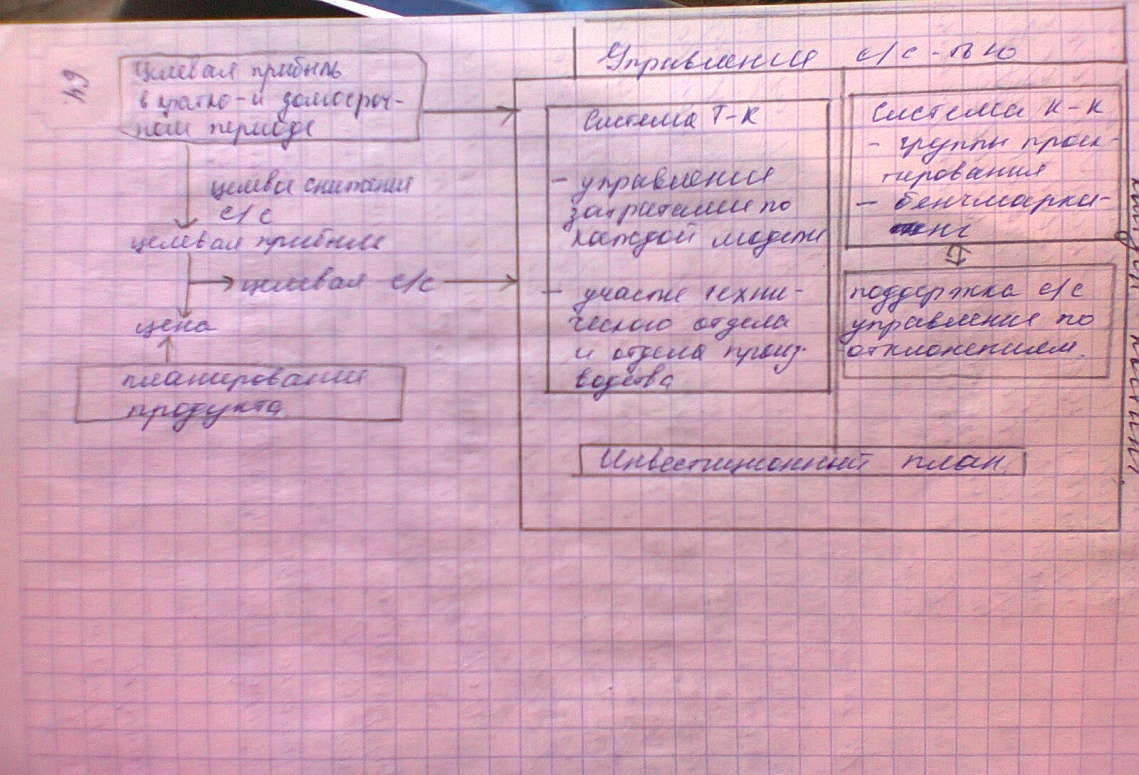 64.
Целевая прибыль
в кратко- и долгосроч-
ном периоде
целевое снижение
с/с
целевая прибыль
целевая с/с
цена
планирование
продукта
Управление с/с-тью
Система Т-К
- управление
затратами по
каждой модели
- участие техни-
ческого отдела
и отдела произ-
водства
Система К-К
- группы проек-
тирования
- бенчмарки-
нг
поддержка с/с
управление по
отклонениям.
Инвестиционный план